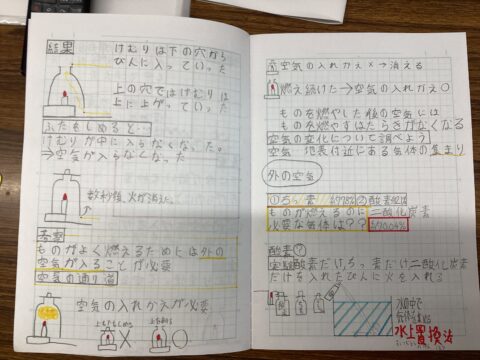 結果
けむりは下の穴から
びんに入っていった
上の穴ではけむりは
上に上がっていった
ふたをしめると…
けむりが中に入らなくなった。
→空気が入らなくなった
数秒後、火が消えた。
考察
ものがよく燃えるためには外の
空気が入ることが必要
空気の通り道
空気の入れかえが必要
空気の入れかえ×→消える
燃え続けた→空気の入れかえ○
ものを燃やした後の空気には
ものを燃やすはたらきがなくなる
空気の変化について調べよう
空気 地表付近にある気体の集まり
外の空気
①ちっ素 約78%②酸素
ものが燃えるのに
二酸化炭素
必要な気体は??
約0.04%
酸素?
実験酸素だけ、ちっ素だけ二酸化炭素
だけを入れたびんに火を入れる
水中で
水上置換法